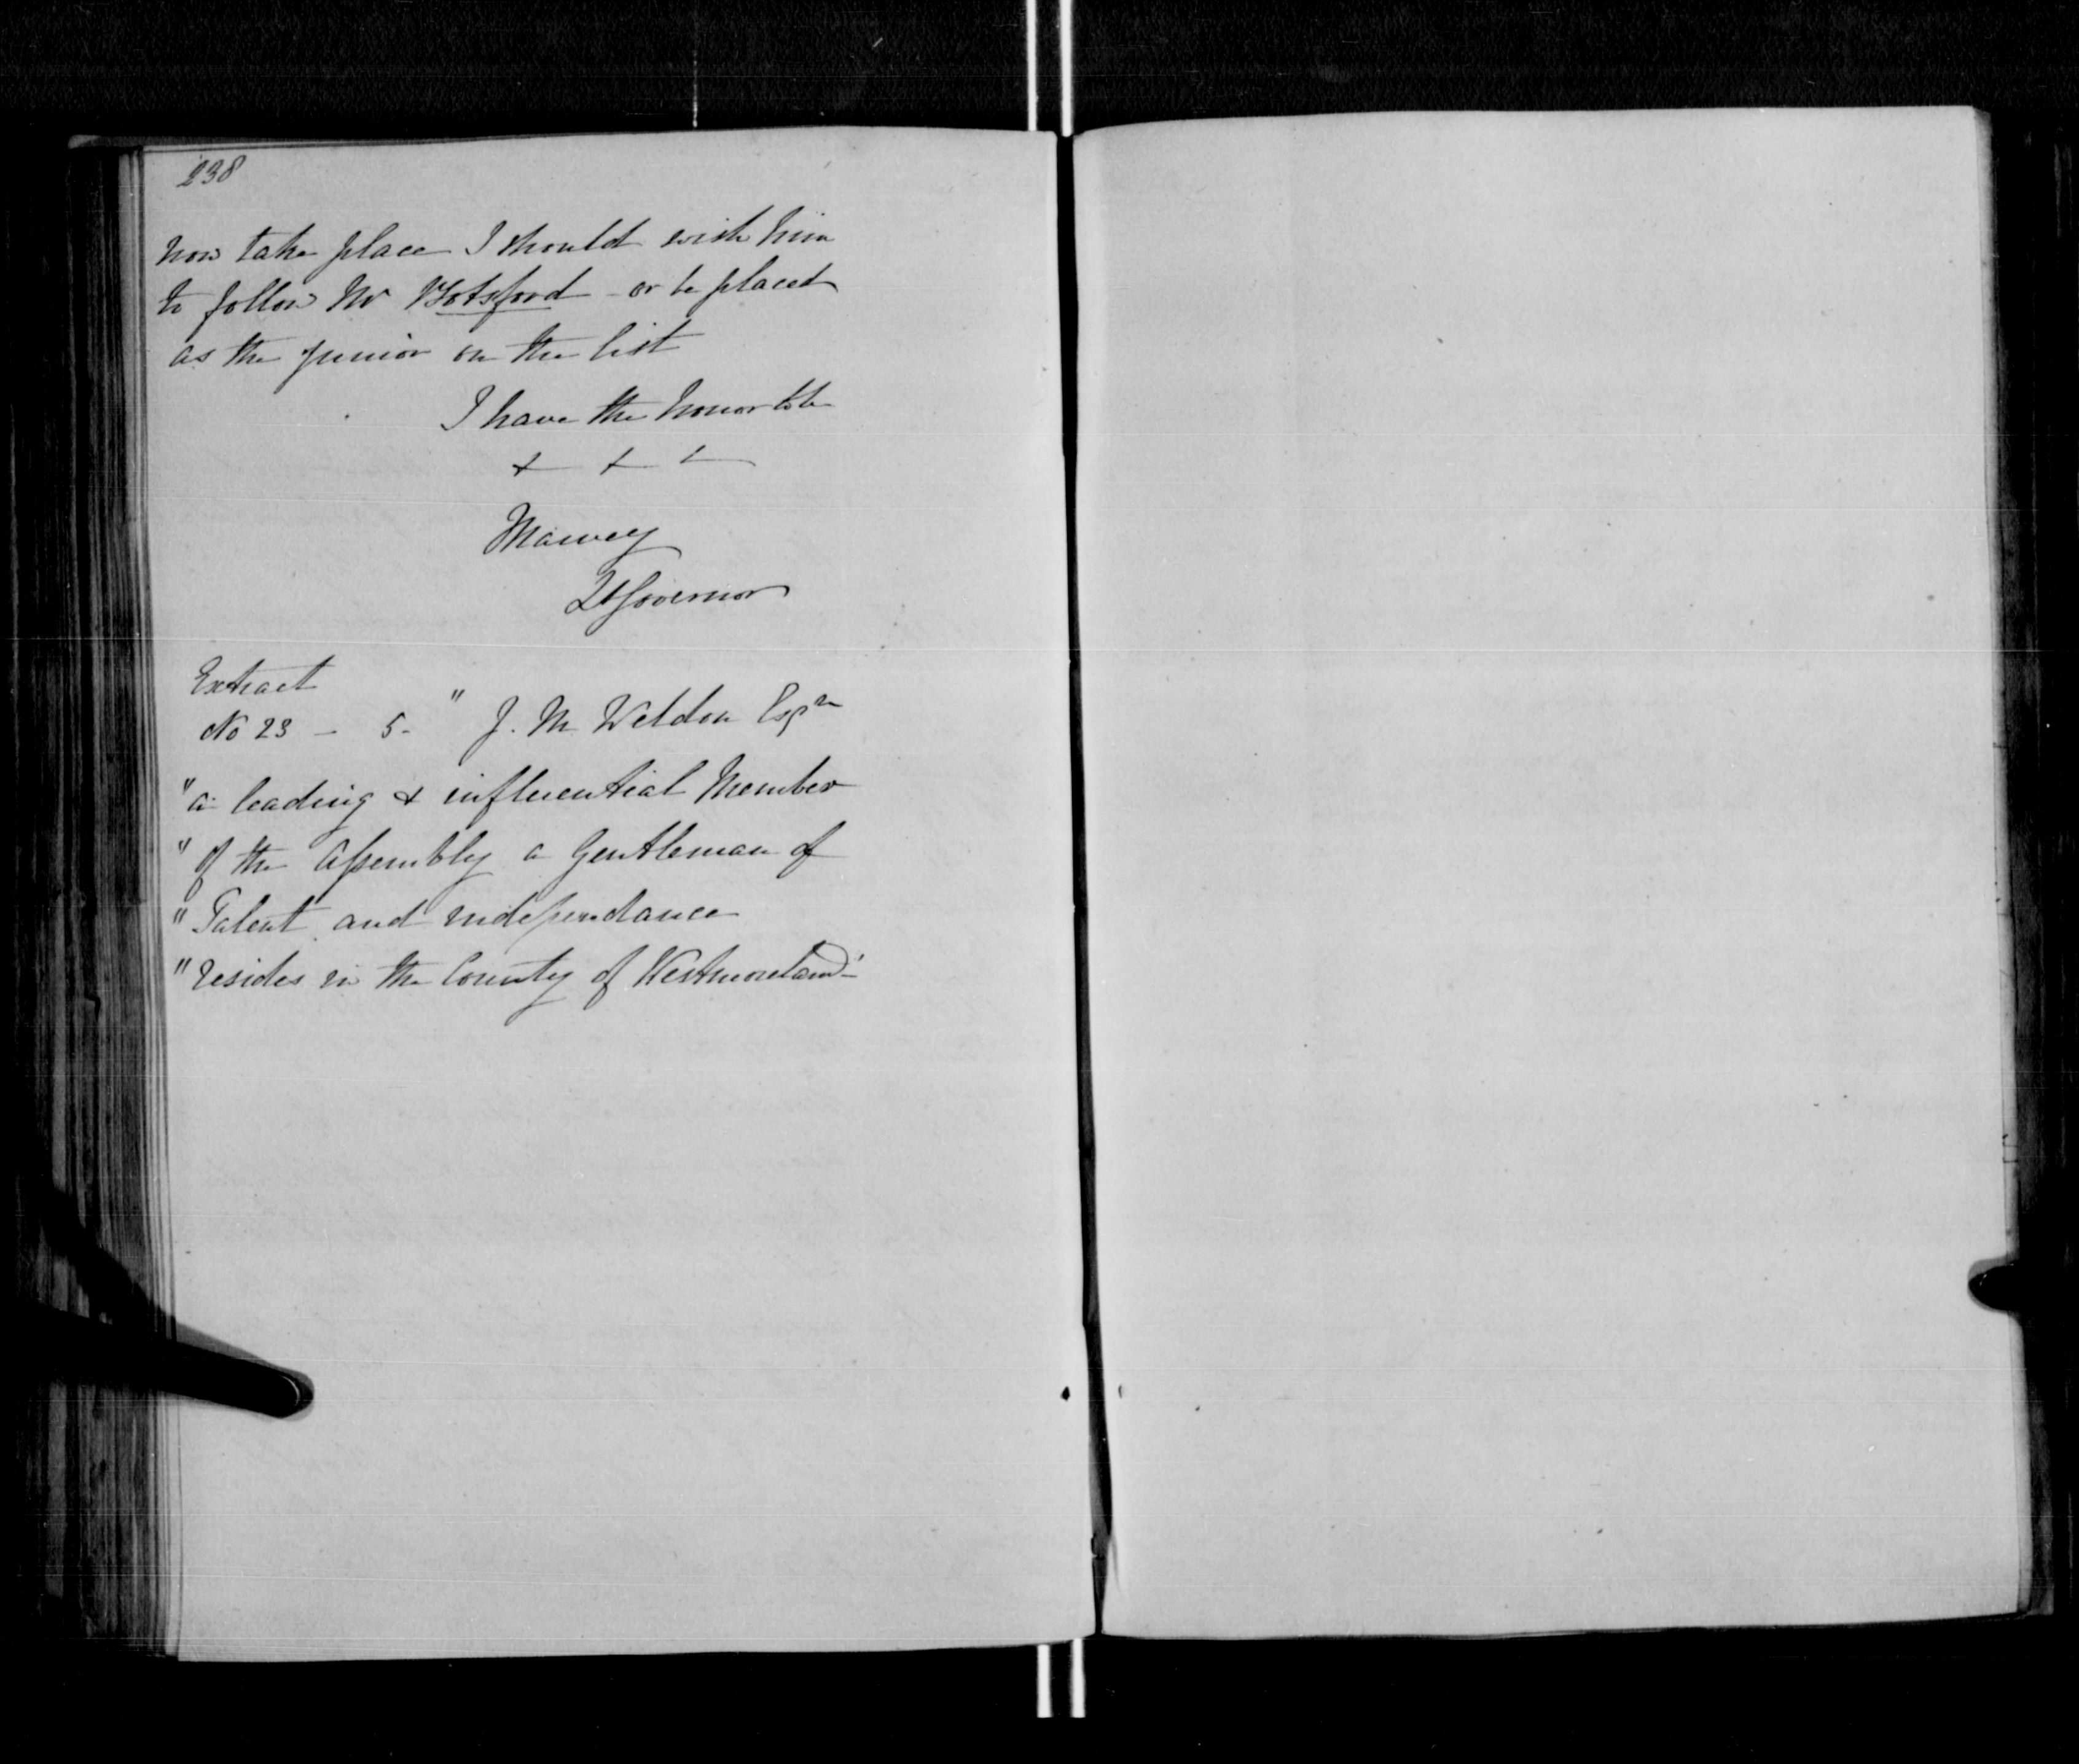 238
now take place I should wish him
to follow Mr Botsford - or be placed
as the junior on the list
I have the honor to be
+ + +
JHarvey
Lt Governor
Extract
No 23 - 5- " J. M Weldon Esqre
"a leading & influential Member
"of the Assembly a Gentleman of
"Talent and independance
"resides in the County of Westmoreland"